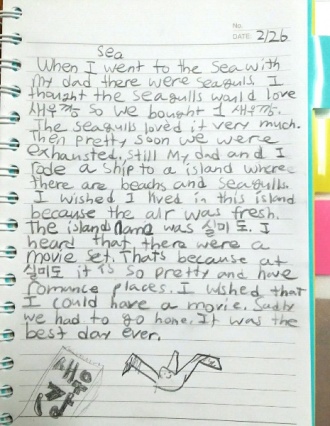 No.
DATE 2/26
Sea
When I went to the Sea with
my dad there were Seagulls. I
thought the Seagulls would love
새우깡 so we bought 1 새우깡.
The seagulls loved it very much.
Then pretty soon we were
exhausted. Still My dad and I
rode a ship to a island where
there are beachs and Seagulls.
I wished I lived in this island
because the air was fresh.
The island name was 실미도. I
heard that there were a
movie set. Thats because at
실미도 it is so pretty and have
romance places. I wished that
I could have a movie. Sadly
we had to go home. It was the
best day ever.
새우
깡